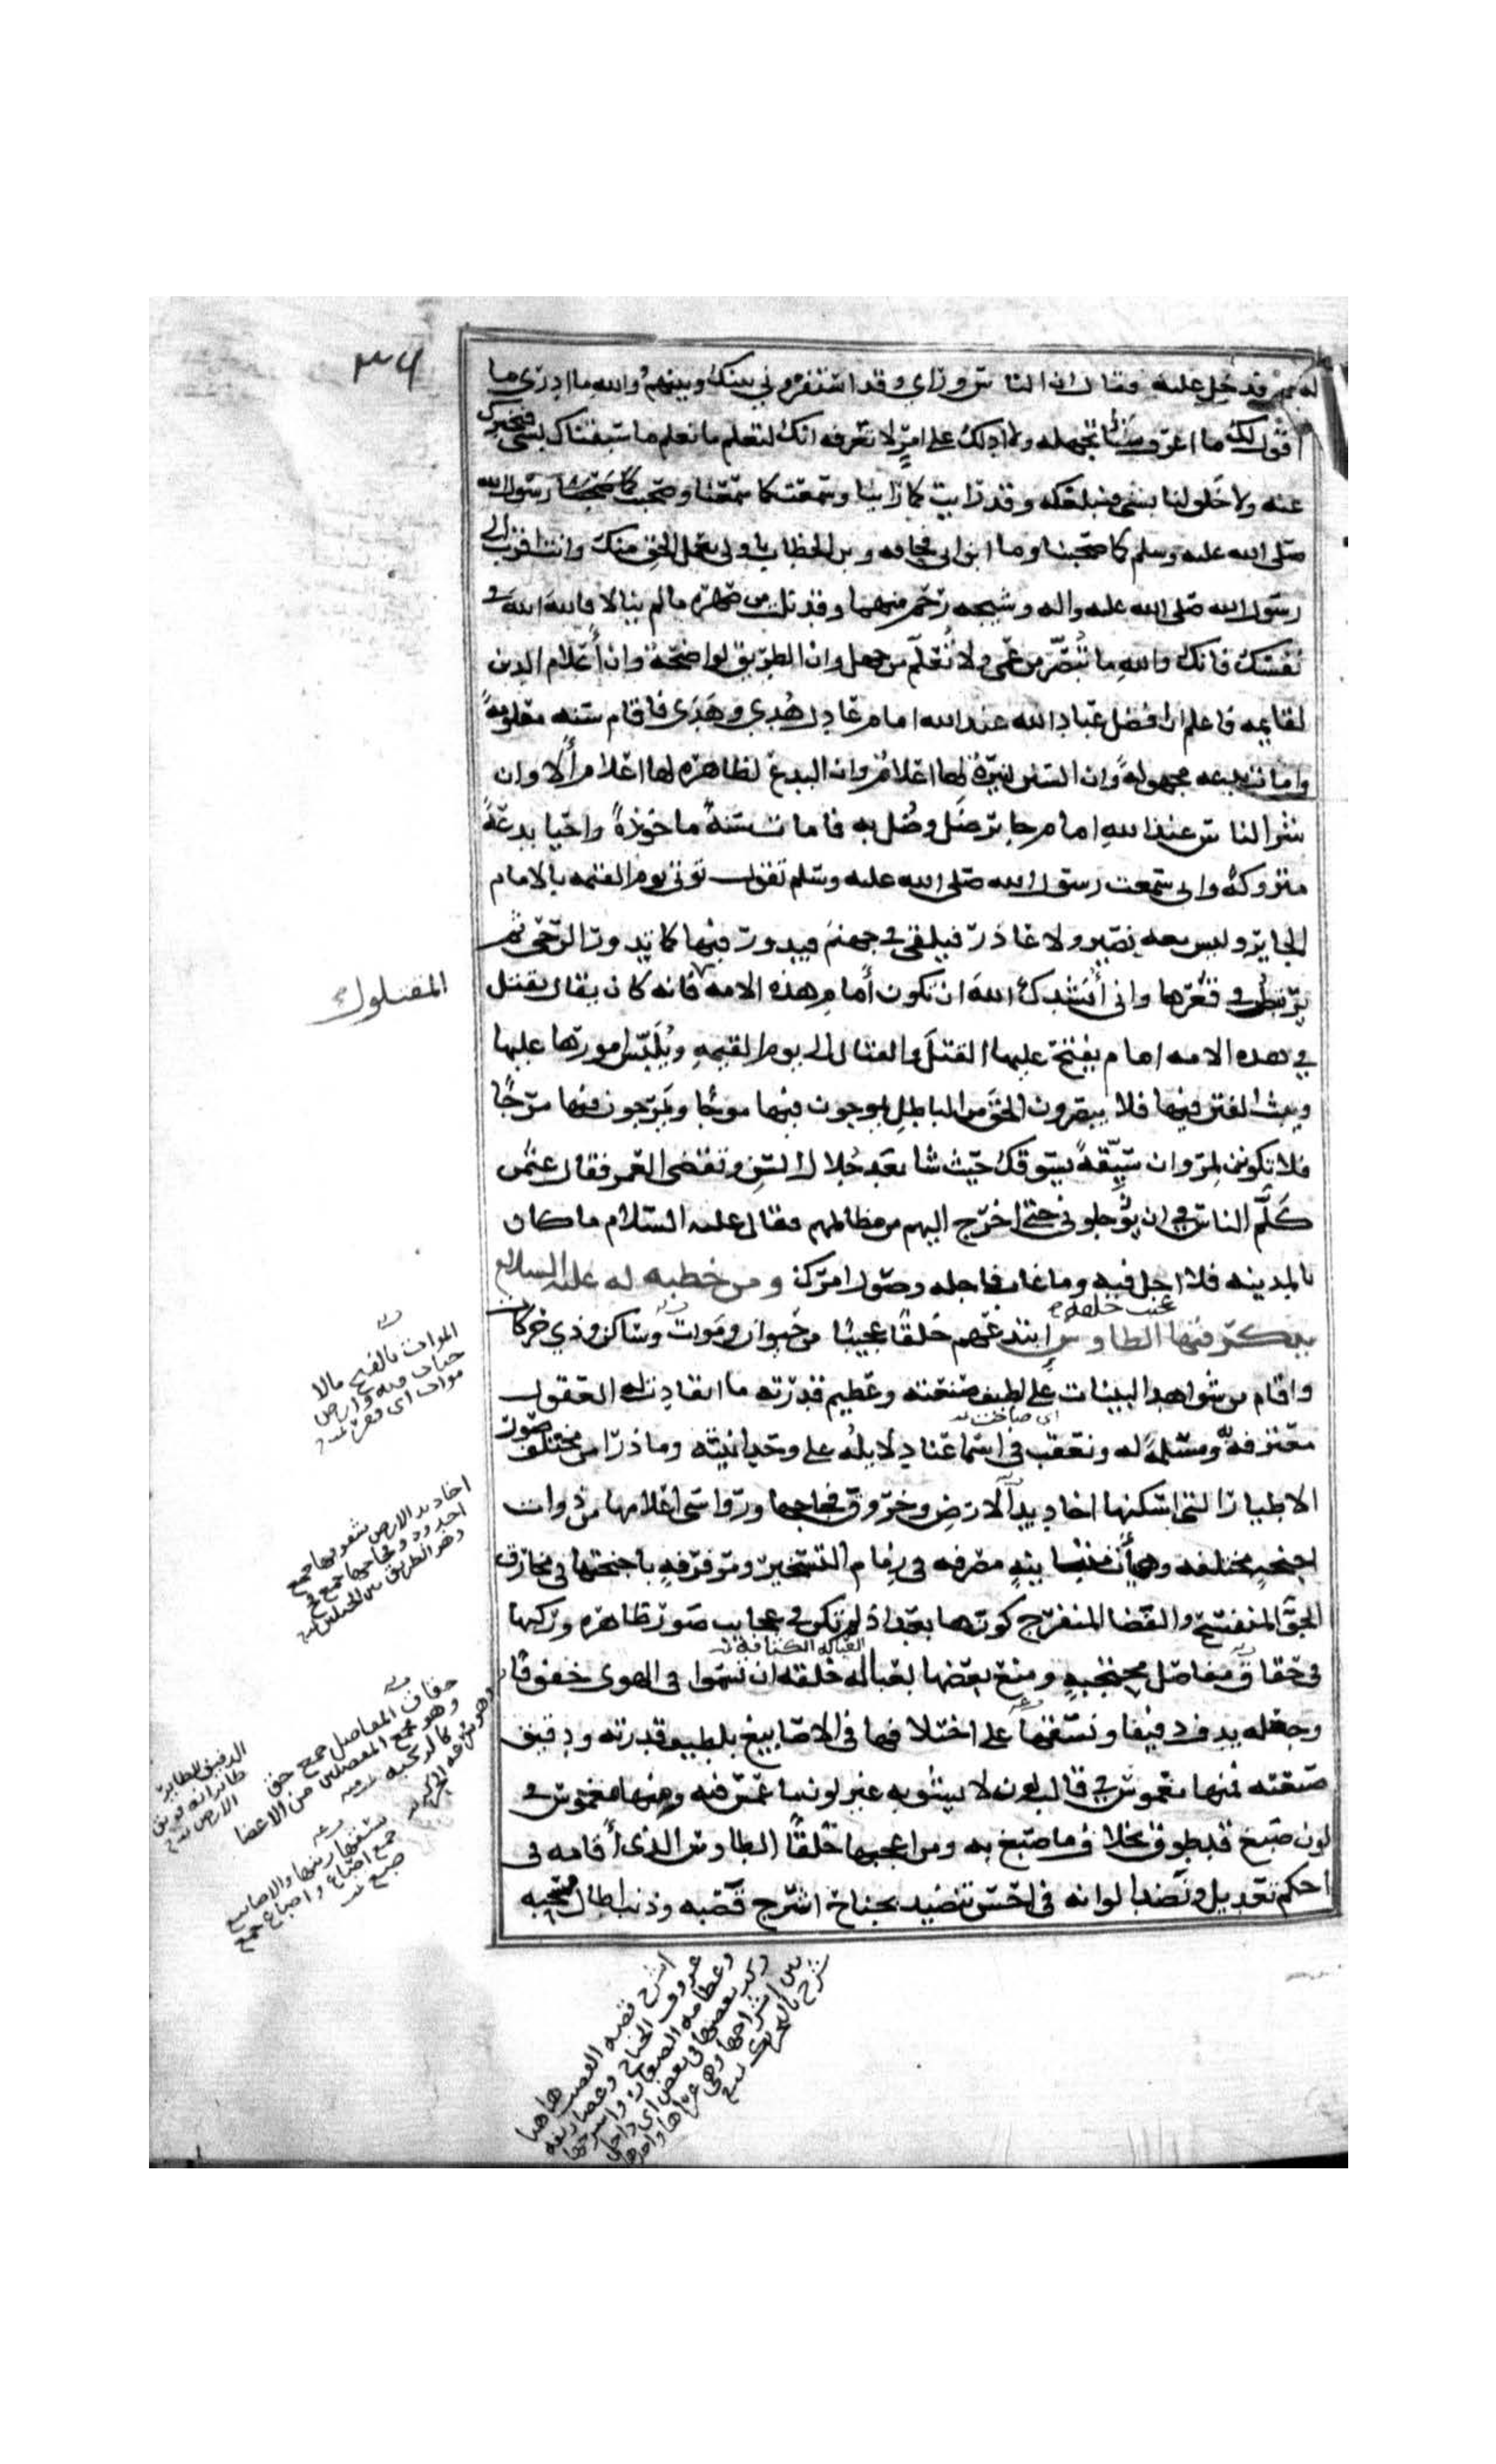 ٣٦
له فدخل عليه فقال ان الناس وراي وقد استسفروني بينك وبينهم والله ما ادري ما
اقول لك ما اعرف شيئا تجهله ولا ادلك على امر لا تعرفه انك لتعلم ما نعلم ما سبقناك بشي فنخبرك
عنه ولا خلونا بشي فنبلغكه وقد رايت كما راينا وسمعت كما سمعنا وصحبت رسول الله
صلى الله عليه وسلم كما صحبنا وما ابن ابي قحافه وبن الخطاب باولى بعمل الحق منك وانت اقرب الى
رسول الله صلى الله عليه واله وشيجه رحم منهما وقد نلت من صهره ما لم ينالا فالله الله في
نفسك فانك والله ما تبصر من عمى ولا تعلم من جهل وان الطريق لواضحة وان أعلام الدين
لقايمه فاعلم ان افضل عباد الله عند الله امام عادل هدي وهدى فاقام سنه معلومة
وامات بدعه مجهولة وان السنن لنيرة لها اعلام وان البدع لظاهره لها اعلام ألا وان
شر الناس عند الله امام جاير ضل وضل به فامات سنة ماخوذة واحيا بدعة
متروكة واني سمعت رسول الله صلى الله عليه وسلم يقول يوتى يوم القيمه بالامام
الجاير وليس معه نصير ولا عاذر فيلقى في جهنم فيدور فيها كما تدور الرحى ثم
يرتبط في قعرها واني أنشدك الله ان تكون أمام هذه الامه فانه كان يقال يقتل
المقتول
في هذه الامه امام يفتح عليها القتل والقتال الى يوم القيمه ويلبس امورها عليها
ويبث الفتن فيها فلا يبصرون الحق من الباطل يموجون فيها موجا ويمرجون فيها مرجا
فلا تكونن لمروان سيقة يسوقك حيث شا بعد جلال السن وتقضى العمر فقال عثمن
كلم الناس في ان يؤجلوني حتى اخرج اليهم من مظالمهم فقال عليه السلام ما كان
بالمدينه فلا اجل فيه وما غاب فاجله وصول امرك ومن خطبه له عليه السلام
عجيب خلقه
يذكر فيها الطاوس ابتدعهم خلقا عجيبا من حيوان وموات وساكن وذي حركات
الموات بالفتح مالا
حيات فيه وارض
موات اى قفر
واقام من شواهد البينات على لطيف صنعته وعظيم قدرته ما انقادت له العقول
معترفة ومسلمة له ونعقت في اسماعنا دلايله على وحدانيته وما ذرا من مختلف صور
اى صاحت
الاطيار التي اسكنها اخاديد الارض وخروق فجاجها ورواسي اعلامها من ذوات
اخاديد الارض شقوقها جمع
اخدود وفجاجها جمع فج
وهو الطريق بين الجبلين
اجنحه مختلفه وهيأت متباينه مصرفه في زمام التسخير ومرفرفه باجنحتها في مخارق
الجو المنفسح والفضا المنفرج كونها بعد اذ لم تكن في عجايب صور ظاهره وركبها
في حقاق مفاصل محتجبه ومنع بعضها بعباله خلقه ان تسموا في الهوى خفوقا
العباله الكثافه
حقاق المفاصل جمع حق
وهو مجمع المفصلين من الاعضا
كالركبه
وجعله يدف دفيفا ونسقها على اختلافها في الاصابيغ بلطيف قدرته ودقيق
الدفيف للطاير
طيرانه فويق
الارض
صنعته فمنها مغموس في قالب لون لا يشوبه غير لون ما غمس فيه ومنها مغموس في
نسقها رتبها والاصابيغ
جمع اصباغ واصباغ جمع
صبغ
لون صبغ قد طوق بخلاف ما صبغ به ومن اعجبها خلقا الطاوس الذي أقامه في
أحكم تعديل ونضد الوانه في احسن تنضيد بجناح اشرج قصبه وذنب اطال مسحبه
اشرج قصبه القصب هاهنا
عروف الجناح وغضاريفه
وعظامه الصغار واشرجها
ركب بعضها في بعض اى داخل
بين اشراجها وهي عراها واحدها
شرج بالتحريك